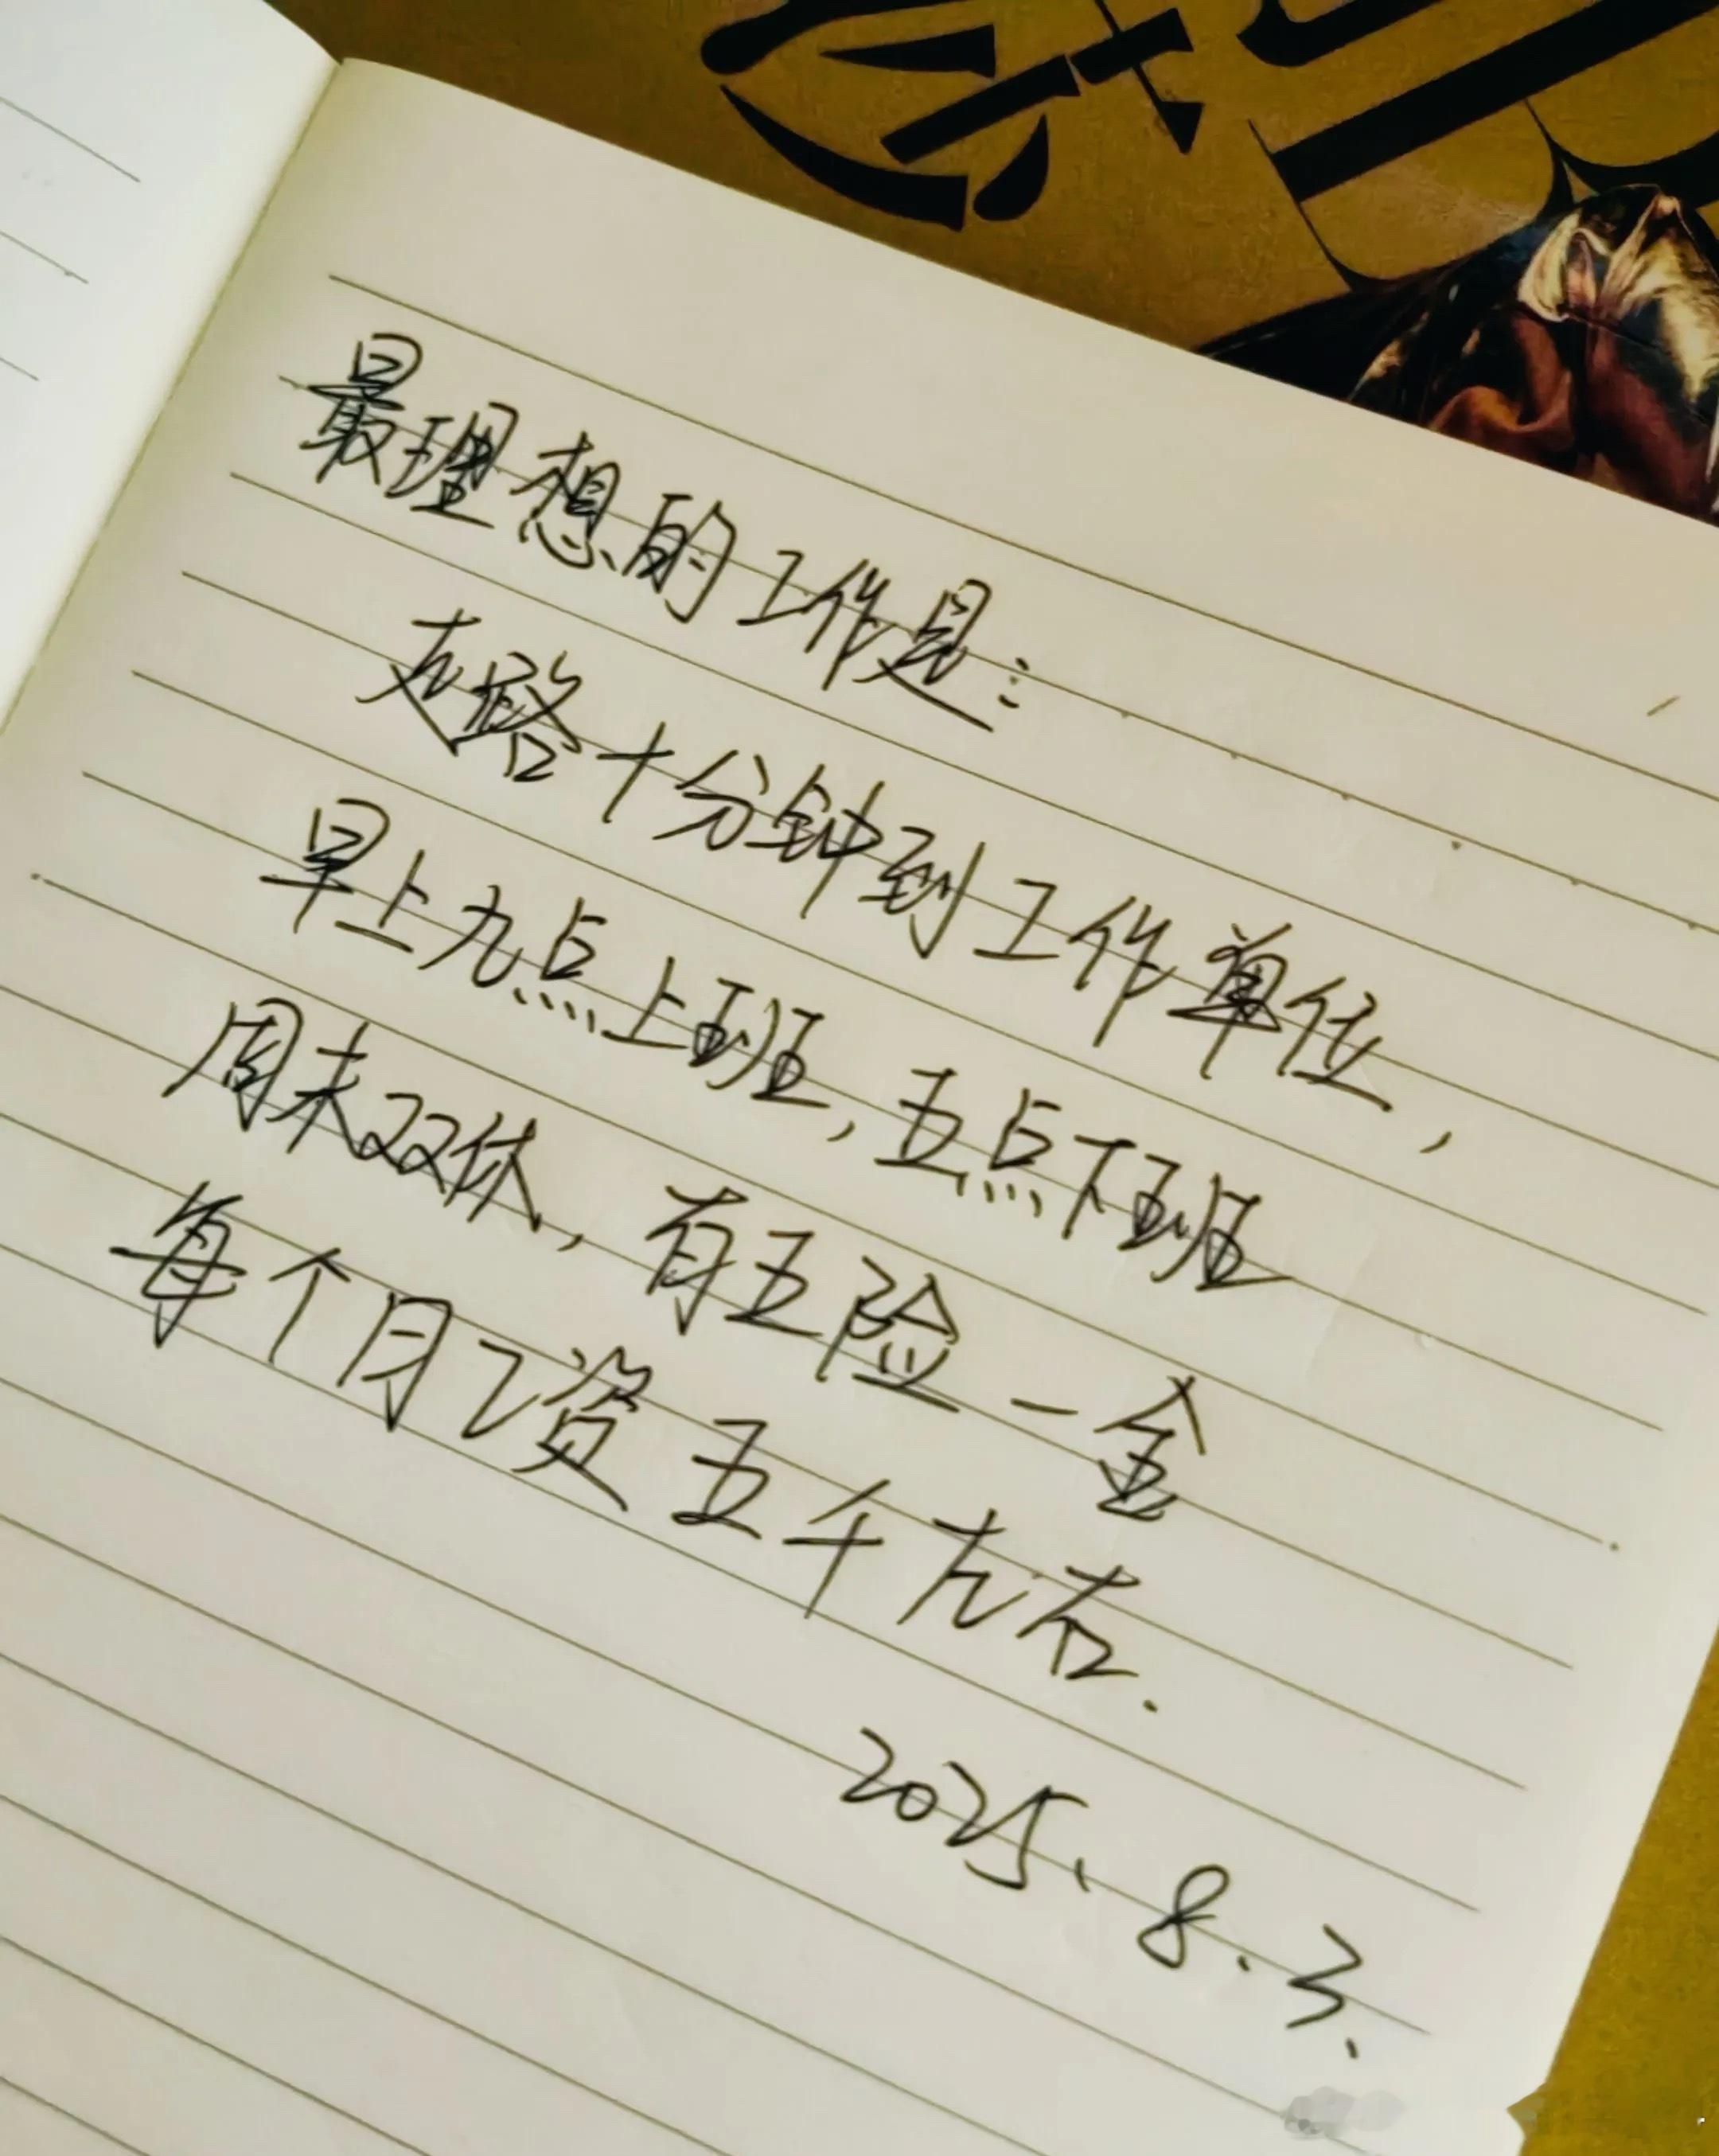 最理想的工作是:
走路十分钟到工作单位,
早上九点上班,五点下班
周末双休,有五险一金
每个月工资五千左右.
2025、8、3、